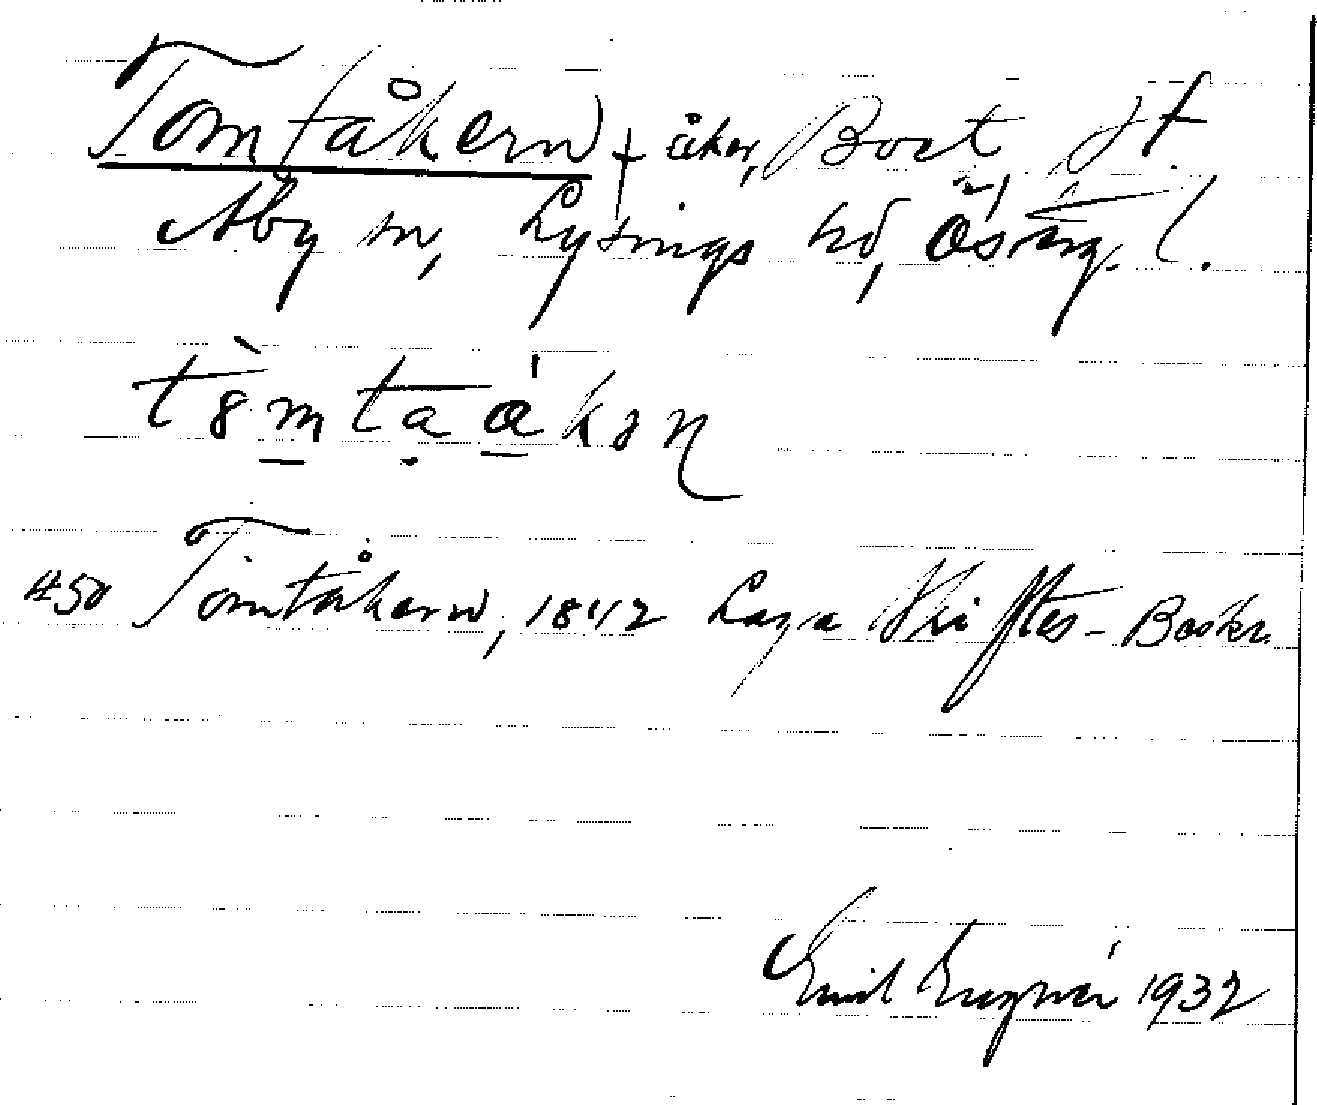 Tomtåkern † åker, Bort, St.
Åby sn, Lysings hd, Östrg. l.
tòmtaákən
#50 Tomtåkern, 1842 Laga Skiftes-Beskr.
Emil 1932